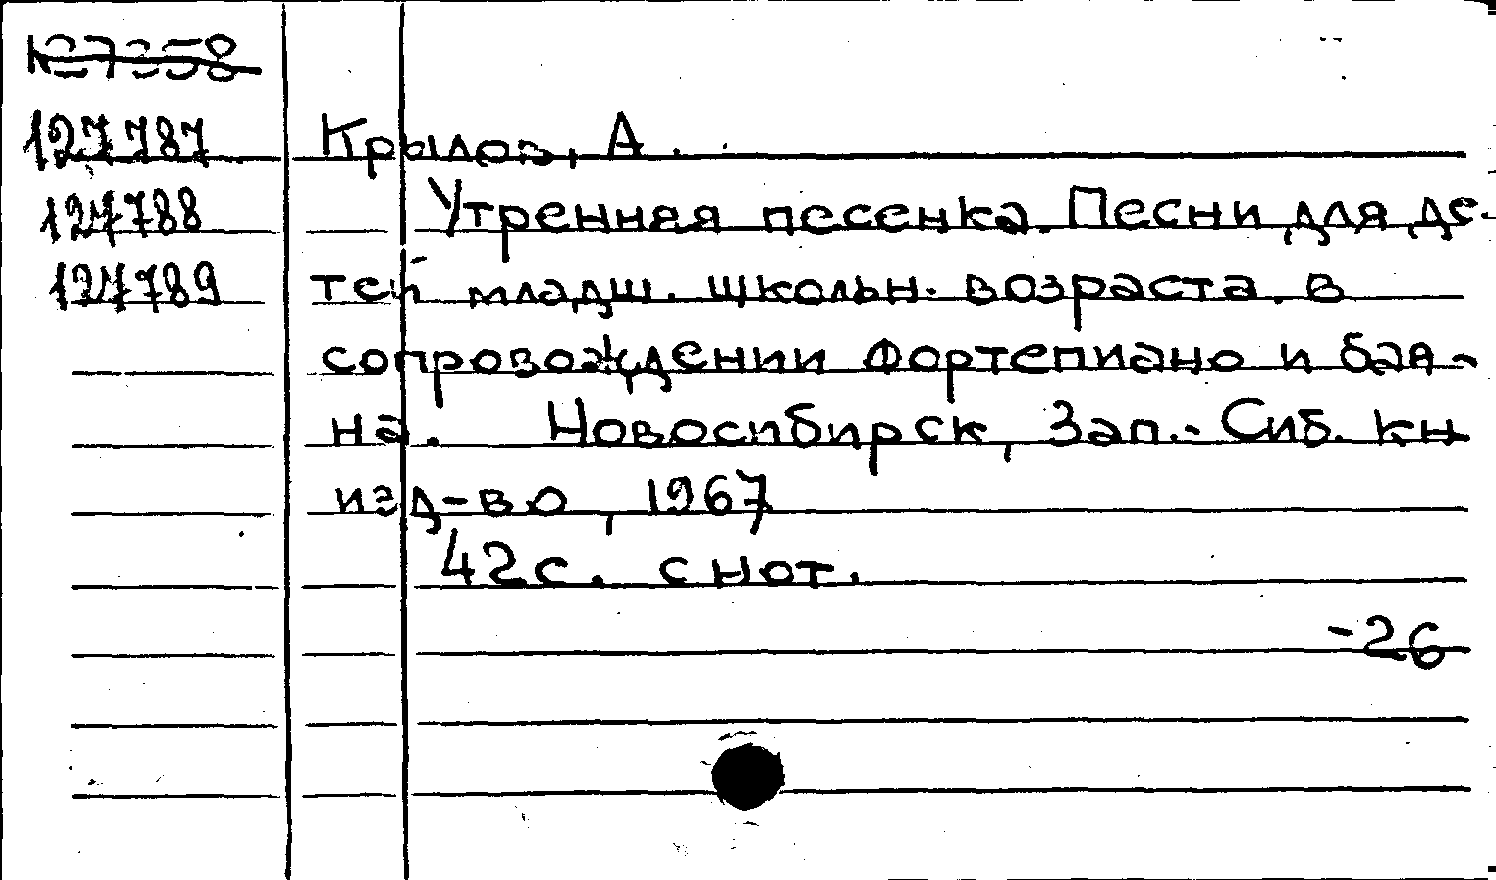 127787
127788
127789
Крылов, А.
Утренняя песенка. Песни для де-
тей младш. школьн. возраста. в
сопровождении фортепиано и бая-
на. Новосибирск, Зап.-Сиб. кн
изд-во, 1967
42с. с нот.
-26